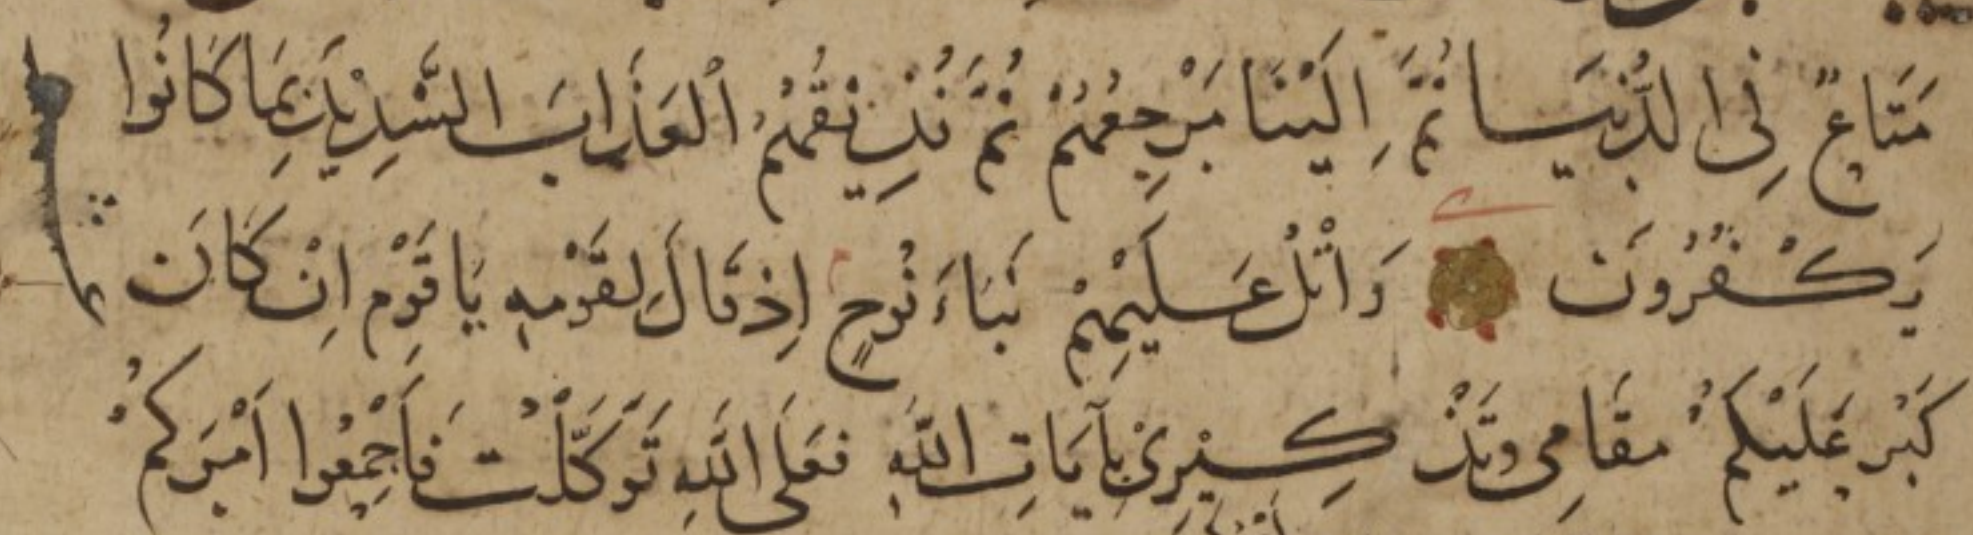 مَتَاعٌ فِى الدُّنْيَا ثُمَّ اِلَيْنَا مَرْجِعُهُمْ ثُمَّ نُذِيقُهُمُ الْعَذَابَ الشَّدِيدَ بِمَا كَانُوا
يَكْفُرُونَ وَاتْلُ عَلَيْهِمْ نَبَاَءَ نُوحٍ اِذ قَالَ لِقَوْمِهِ يَا قَوْمِ اِنْ كَانَ
كَبُرَ عَلَيْكُمْ مَقَامِى وَتَذْكِيرِىْ بِآيَاتِ اللّٰهِ فَعَلَى اللّٰهِ تَوَكَّلْتُ فَاَجْمِعُوا اَمْرَكُمْ